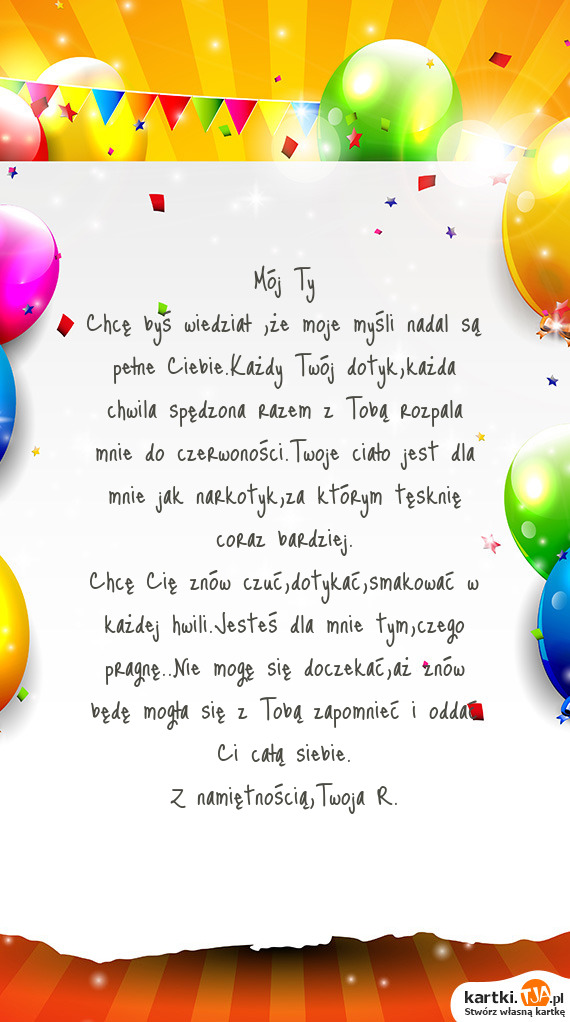 Mój Ty
Chcę byś wiedział ,że moje myśli nadal są
pełne Ciebie.Każdy Twój dotyk,każda
chwila spędzona razem z Tobą rozpala
mnie do czerwoności.Twoje ciało jest dla
mnie jak narkotyk,za którym tęsknię
coraz bardziej.
Chcę Cię znów czuć,dotykać,smakować w
każdej hwili.Jesteś dla mnie tym,czego
pragnę..Nie mogę się doczekać,aż znów
będę mogła się z Tobą zapomnieć i oddać
Ci całą siebie.
Z namiętnością,Twoja R.
kartki.TJA.pl
Stwórz własną kartkę